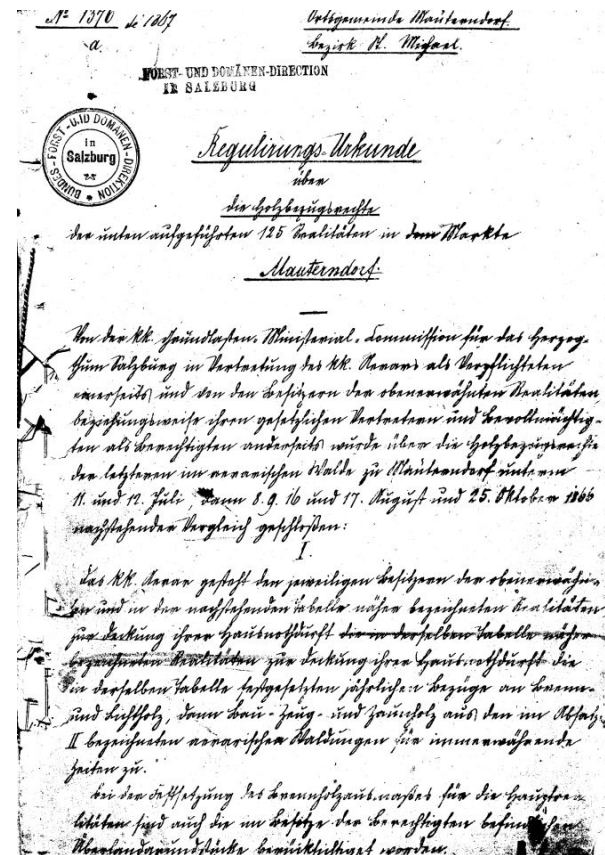 No 1370 de 1867
a.
Ortsgemeinde Mauterndorf.
Bezirk St. Michael.
FORST- UND DOMÄNEN-DIRECTION
IN SALZBURG
BUNDES-FORST-UND DOMÄNEN-DIREKTION
in
Salzburg
Regulirungs-Urkunde
über
die Holzbezugsrechte
der unten aufgeführten 125 Realitäten in dem Markte
Mauterndorf.
Von der kk. Grundlasten-Ministerial-Commission für das Herzog-
thum Salzburg in Vertretung des kk. Aerars als Verpflichteten
einerseits und von den Besitzern der obenerwähnten Realitäten
beziehungsweise ihren gesetzlichen Vertretern und Bevollmächtig-
ten als Berechtigten anderseits wurde über die Holzbezugsrechte
der letzteren im aerarischen Walde zu Mauterndorf unterm
11. und 12. Juli, dann 8. 9. 16 und 17. August und 25. Oktober 1866
nachstehender Vergleich geschloßen:
I.
Das kk. Aerar gesteht den jeweiligen Besitzern der obenerwähn-
ten und in der nachstehenden Tabelle näher bezeichneten Realitäten
zur Deckung ihrer Hausnothdurft die in derselben Tabelle näher
bezeichneten Realitäten zur Deckung ihrer Hausnothdurft die
in derselben Tabelle festgesetzten jährlichen Bezüge an Brenn-
und Lichtholz, dann Bau- Zeug- und Zaunholz aus den im Absatz
II bezeichneten aerarischen Waldungen für immerwährende
Zeiten zu.
Bei der Festsetzung des Brennholzausmaßes für die Hauptrea-
litäten sind auch die im Besitze der Berechtigten befindlichen
Überlandgrundstücke berücksichtiget worden.